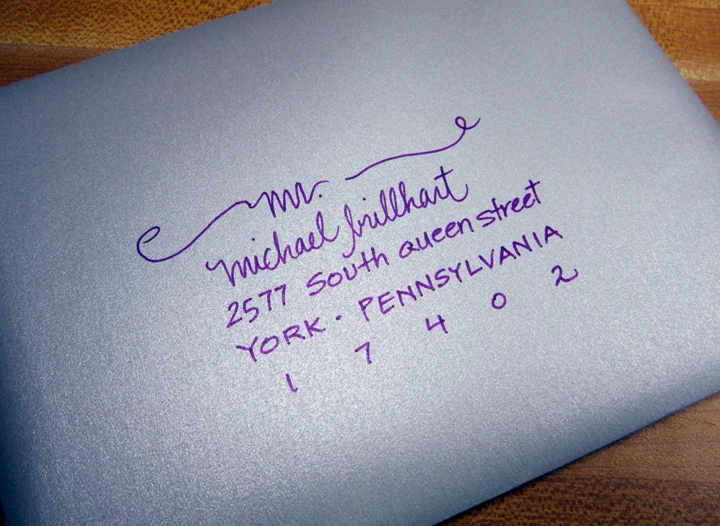 Mr.
michael brillhart
2577 South queen street
YORK - PENNSYLVANIA
17402